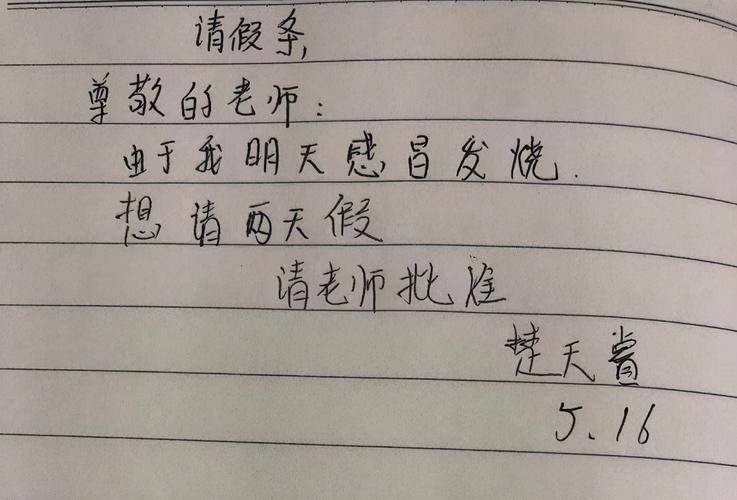 请假条
尊敬的老师:
由于我明天感冒发烧.
想请两天假
请老师批准
楚天
5.16